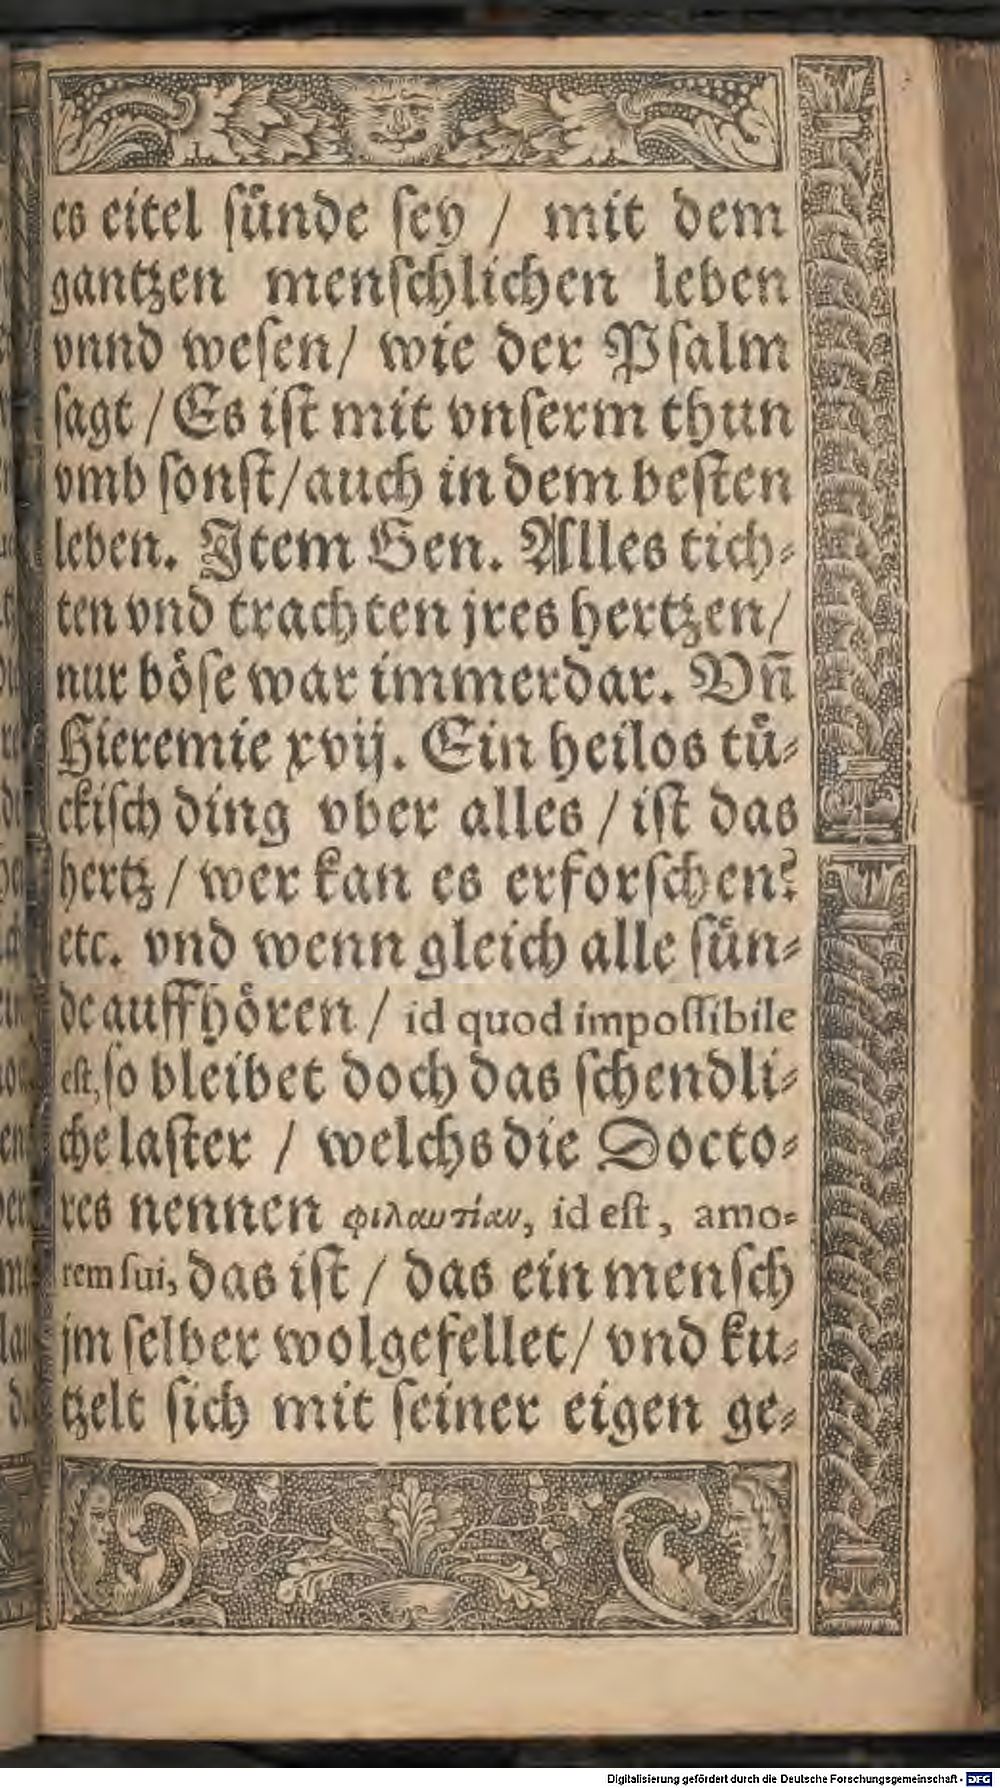 es eitel ſuͤnde ſey / mit dem
gantzen menſchlichen leben
vnnd weſen / wie der Pſalm
ſagt / Es iſt mit vnſerm thun
vmb ſonſt / auch in dem beſten
leben. Item Gen. Alles tich⸗
ten vnd trachten jres hertzen /
nur boͤſe war immerdar. Vn̄
Hieremie xvij. Ein heilos tuͤ⸗
ckiſch ding vber alles / iſt das
hertz / wer kan es erforſchen?
etc. vnd wenn gleich alle ſuͤn⸗
de auffhoͤren / id quod impoſſibile
eſt, ſo bleibet doch das ſchendli⸗
che laſter / welchs die Docto⸗
res nennen φιλαυτίαν, id eſt, amo⸗
rem ſui, das iſt / das ein menſch
jm ſelber wolgefellet / vnd ku⸗
tzelt ſich mit ſeiner eigen ge⸗
Digitalisierung gefördert durch die Deutsche Forschungsgemeinschaft - DFG